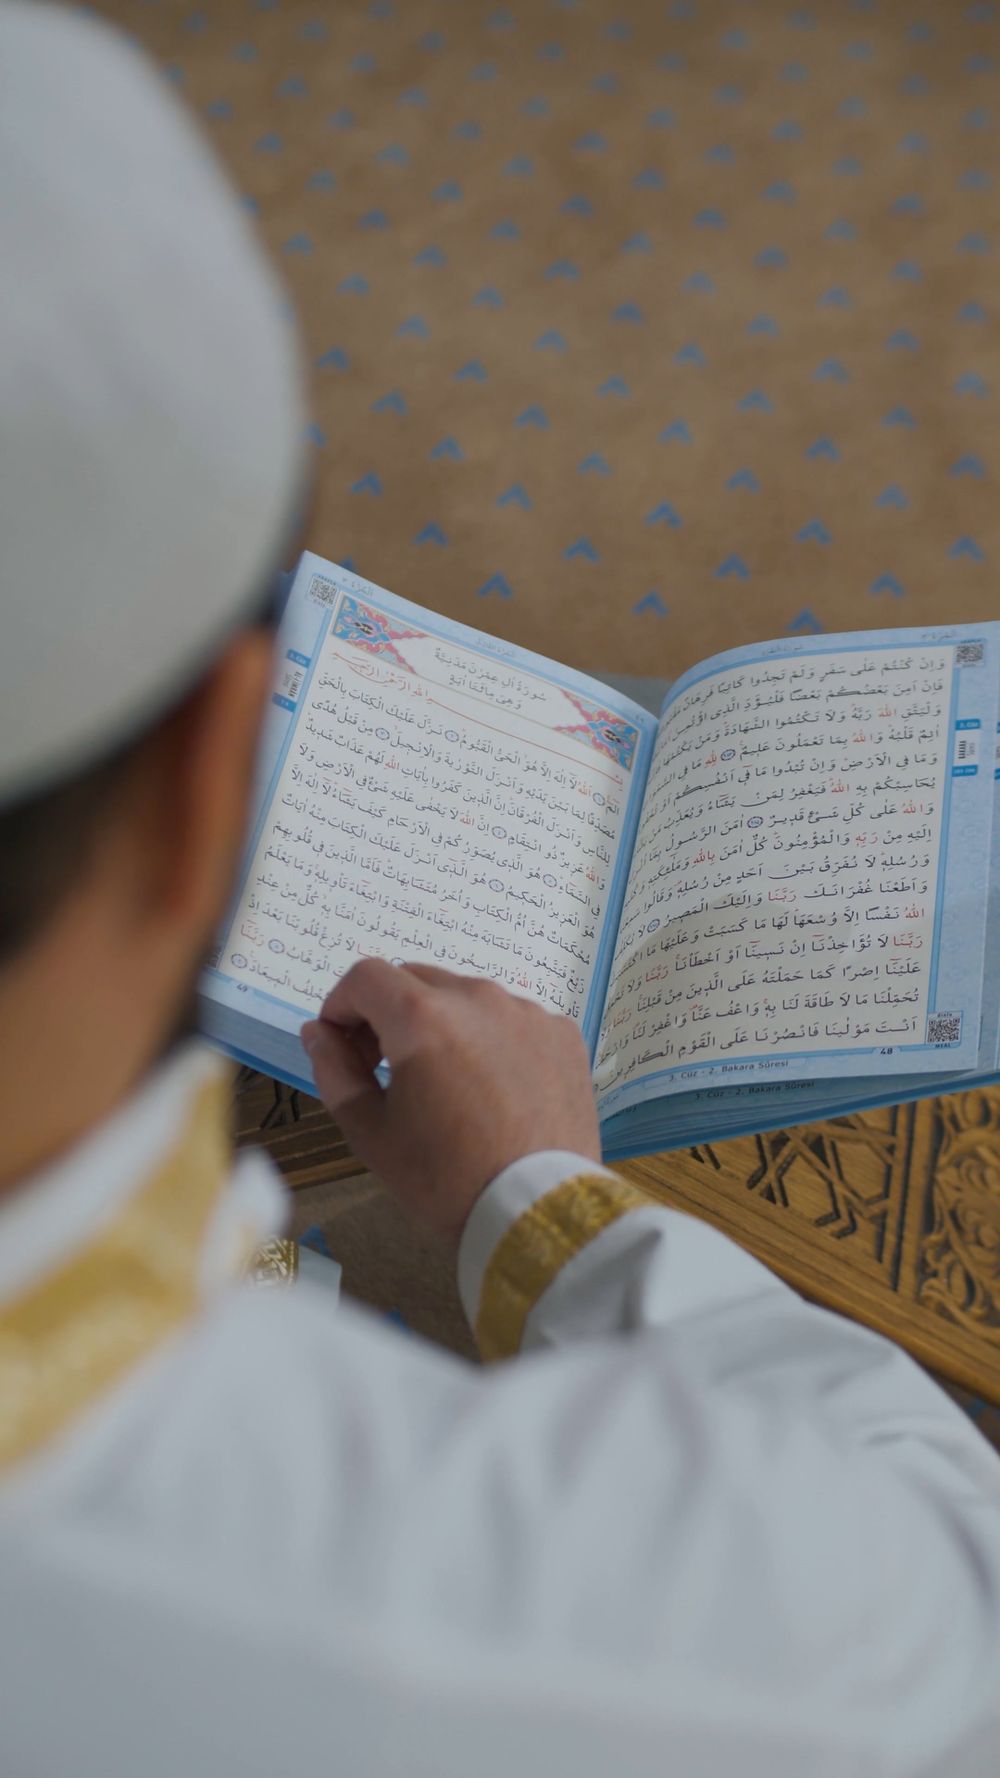 وَاِنْ كُنْتُمْ عَلٰى سَفَرٍ وَلَمْ تَجِدُوا كَاتِبًا فَرِهَانٌ
فَاِنْ اَمِنَ بَعْضُكُمْ بَعْضًا فَلْيُؤَدِّ الَّذِى اؤْتُمِنَ
وَلْيَتَّقِ اللّٰهَ رَبَّهُ وَلَا تَكْتُمُوا الشَّهَادَةَ وَمَنْ يَكْتُمْهَا
اٰثِمٌ قَلْبُهُ وَاللّٰهُ بِمَا تَعْمَلُونَ عَلِيمٌ لِلّٰهِ مَا فِى
وَمَا فِى الْاَرْضِ وَاِنْ تُبْدُوا مَا فِى اَنْفُسِكُمْ اَوْ
يُحَاسِبْكُمْ بِهِ اللّٰهُ فَيَغْفِرُ لِمَنْ يَشَاءُ وَيُعَذِّبُ مَنْ
وَاللّٰهُ عَلٰى كُلِّ شَىْءٍ قَدِيرٌ اٰمَنَ الرَّسُولُ بِمَا
اِلَيْهِ مِنْ رَبِّهِ وَالْمُؤْمِنُونَ كُلٌّ اٰمَنَ بِاللّٰهِ وَمَلٰئِكَتِهِ
وَرُسُلِهِ لَا نُفَرِّقُ بَيْنَ اَحَدٍ مِنْ رُسُلِهِ وَقَالُوا
وَاَطَعْنَا غُفْرَانَكَ رَبَّنَا وَاِلَيْكَ الْمَصِيرُ لَا
اللّٰهُ نَفْسًا اِلَّا وُسْعَهَا لَهَا مَا كَسَبَتْ وَعَلَيْهَا مَا
رَبَّنَا لَا تُؤَاخِذْنَا اِنْ نَسِينَا اَوْ اَخْطَأْنَا رَبَّنَا وَلَا
عَلَيْنَا اِصْرًا كَمَا حَمَلْتَهُ عَلَى الَّذِينَ مِنْ قَبْلِنَا رَبَّنَا
تُحَمِّلْنَا مَا لَا طَاقَةَ لَنَا بِهِ وَاعْفُ عَنَّا وَاغْفِرْ لَنَا
اَنْتَ مَوْلٰينَا فَانْصُرْنَا عَلَى الْقَوْمِ الْكَافِرِينَ
48
3. Cüz - 2. Bakara Sûresi
3. Cüz - 2. Bakara Sûresi
سُورَةُ اٰلِ عِمْرٰنَ مَدَنِيَّةٌ
وَهِىَ مِائَتَا اٰيَةٍ
بِسْمِ اللّٰهِ الرَّحْمٰنِ الرَّحِيمِ
الٓمٓ اللّٰهُ لَا اِلٰهَ اِلَّا هُوَ الْحَىُّ الْقَيُّومُ نَزَّلَ عَلَيْكَ الْكِتَابَ بِالْحَقِّ
مُصَدِّقًا لِمَا بَيْنَ يَدَيْهِ وَاَنْزَلَ التَّوْرٰيةَ وَالْاِنْجِيلَ مِنْ قَبْلُ هُدًى
لِلنَّاسِ وَاَنْزَلَ الْفُرْقَانَ اِنَّ الَّذِينَ كَفَرُوا بِاٰيَاتِ اللّٰهِ لَهُمْ عَذَابٌ شَدِيدٌ
وَاللّٰهُ عَزِيزٌ ذُو انْتِقَامٍ اِنَّ اللّٰهَ لَا يَخْفٰى عَلَيْهِ شَىْءٌ فِى الْاَرْضِ وَلَا
فِى السَّمَاءِ هُوَ الَّذِى يُصَوِّرُكُمْ فِى الْاَرْحَامِ كَيْفَ يَشَاءُ لَا اِلٰهَ اِلَّا
هُوَ الْعَزِيزُ الْحَكِيمُ هُوَ الَّذِى اَنْزَلَ عَلَيْكَ الْكِتَابَ مِنْهُ اٰيَاتٌ
مُحْكَمَاتٌ هُنَّ اُمُّ الْكِتَابِ وَاُخَرُ مُتَشَابِهَاتٌ فَاَمَّا الَّذِينَ فِى قُلُوبِهِمْ
زَيْغٌ فَيَتَّبِعُونَ مَا تَشَابَهَ مِنْهُ ابْتِغَاءَ الْفِتْنَةِ وَابْتِغَاءَ تَأْوِيلِهِ وَمَا يَعْلَمُ
تَأْوِيلَهُ اِلَّا اللّٰهُ وَالرَّاسِخُونَ فِى الْعِلْمِ يَقُولُونَ اٰمَنَّا بِهِ كُلٌّ مِنْ عِنْدِ
رَبَّنَا لَا تُزِغْ قُلُوبَنَا بَعْدَ اِذْ
الْوَهَّابُ رَبَّنَا
يُخْلِفُ الْمِيعَادَ
49